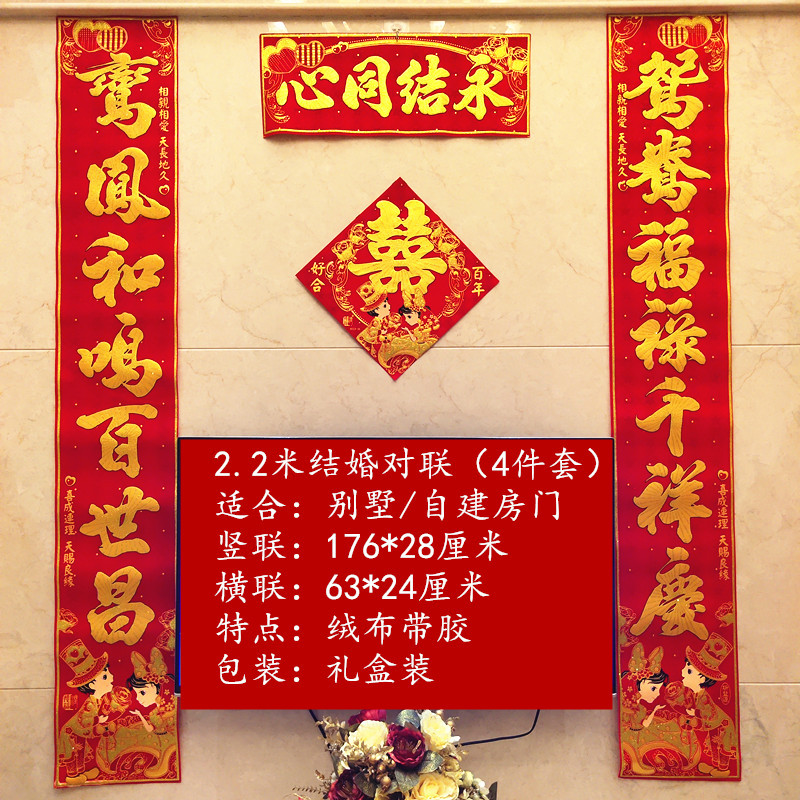 永结同心
鸳鸯福禄千祥慶
相親相愛 天長地久
喜成連理 天賜良緣
鸞鳳和鳴百世昌
相親相愛 天長地久
喜成連理 天賜良緣
囍
百年
好合
2.2米结婚对联（4件套）
适合：别墅/自建房门
竖联：176*28厘米
横联：63*24厘米
特点：绒布带胶
包装：礼盒装